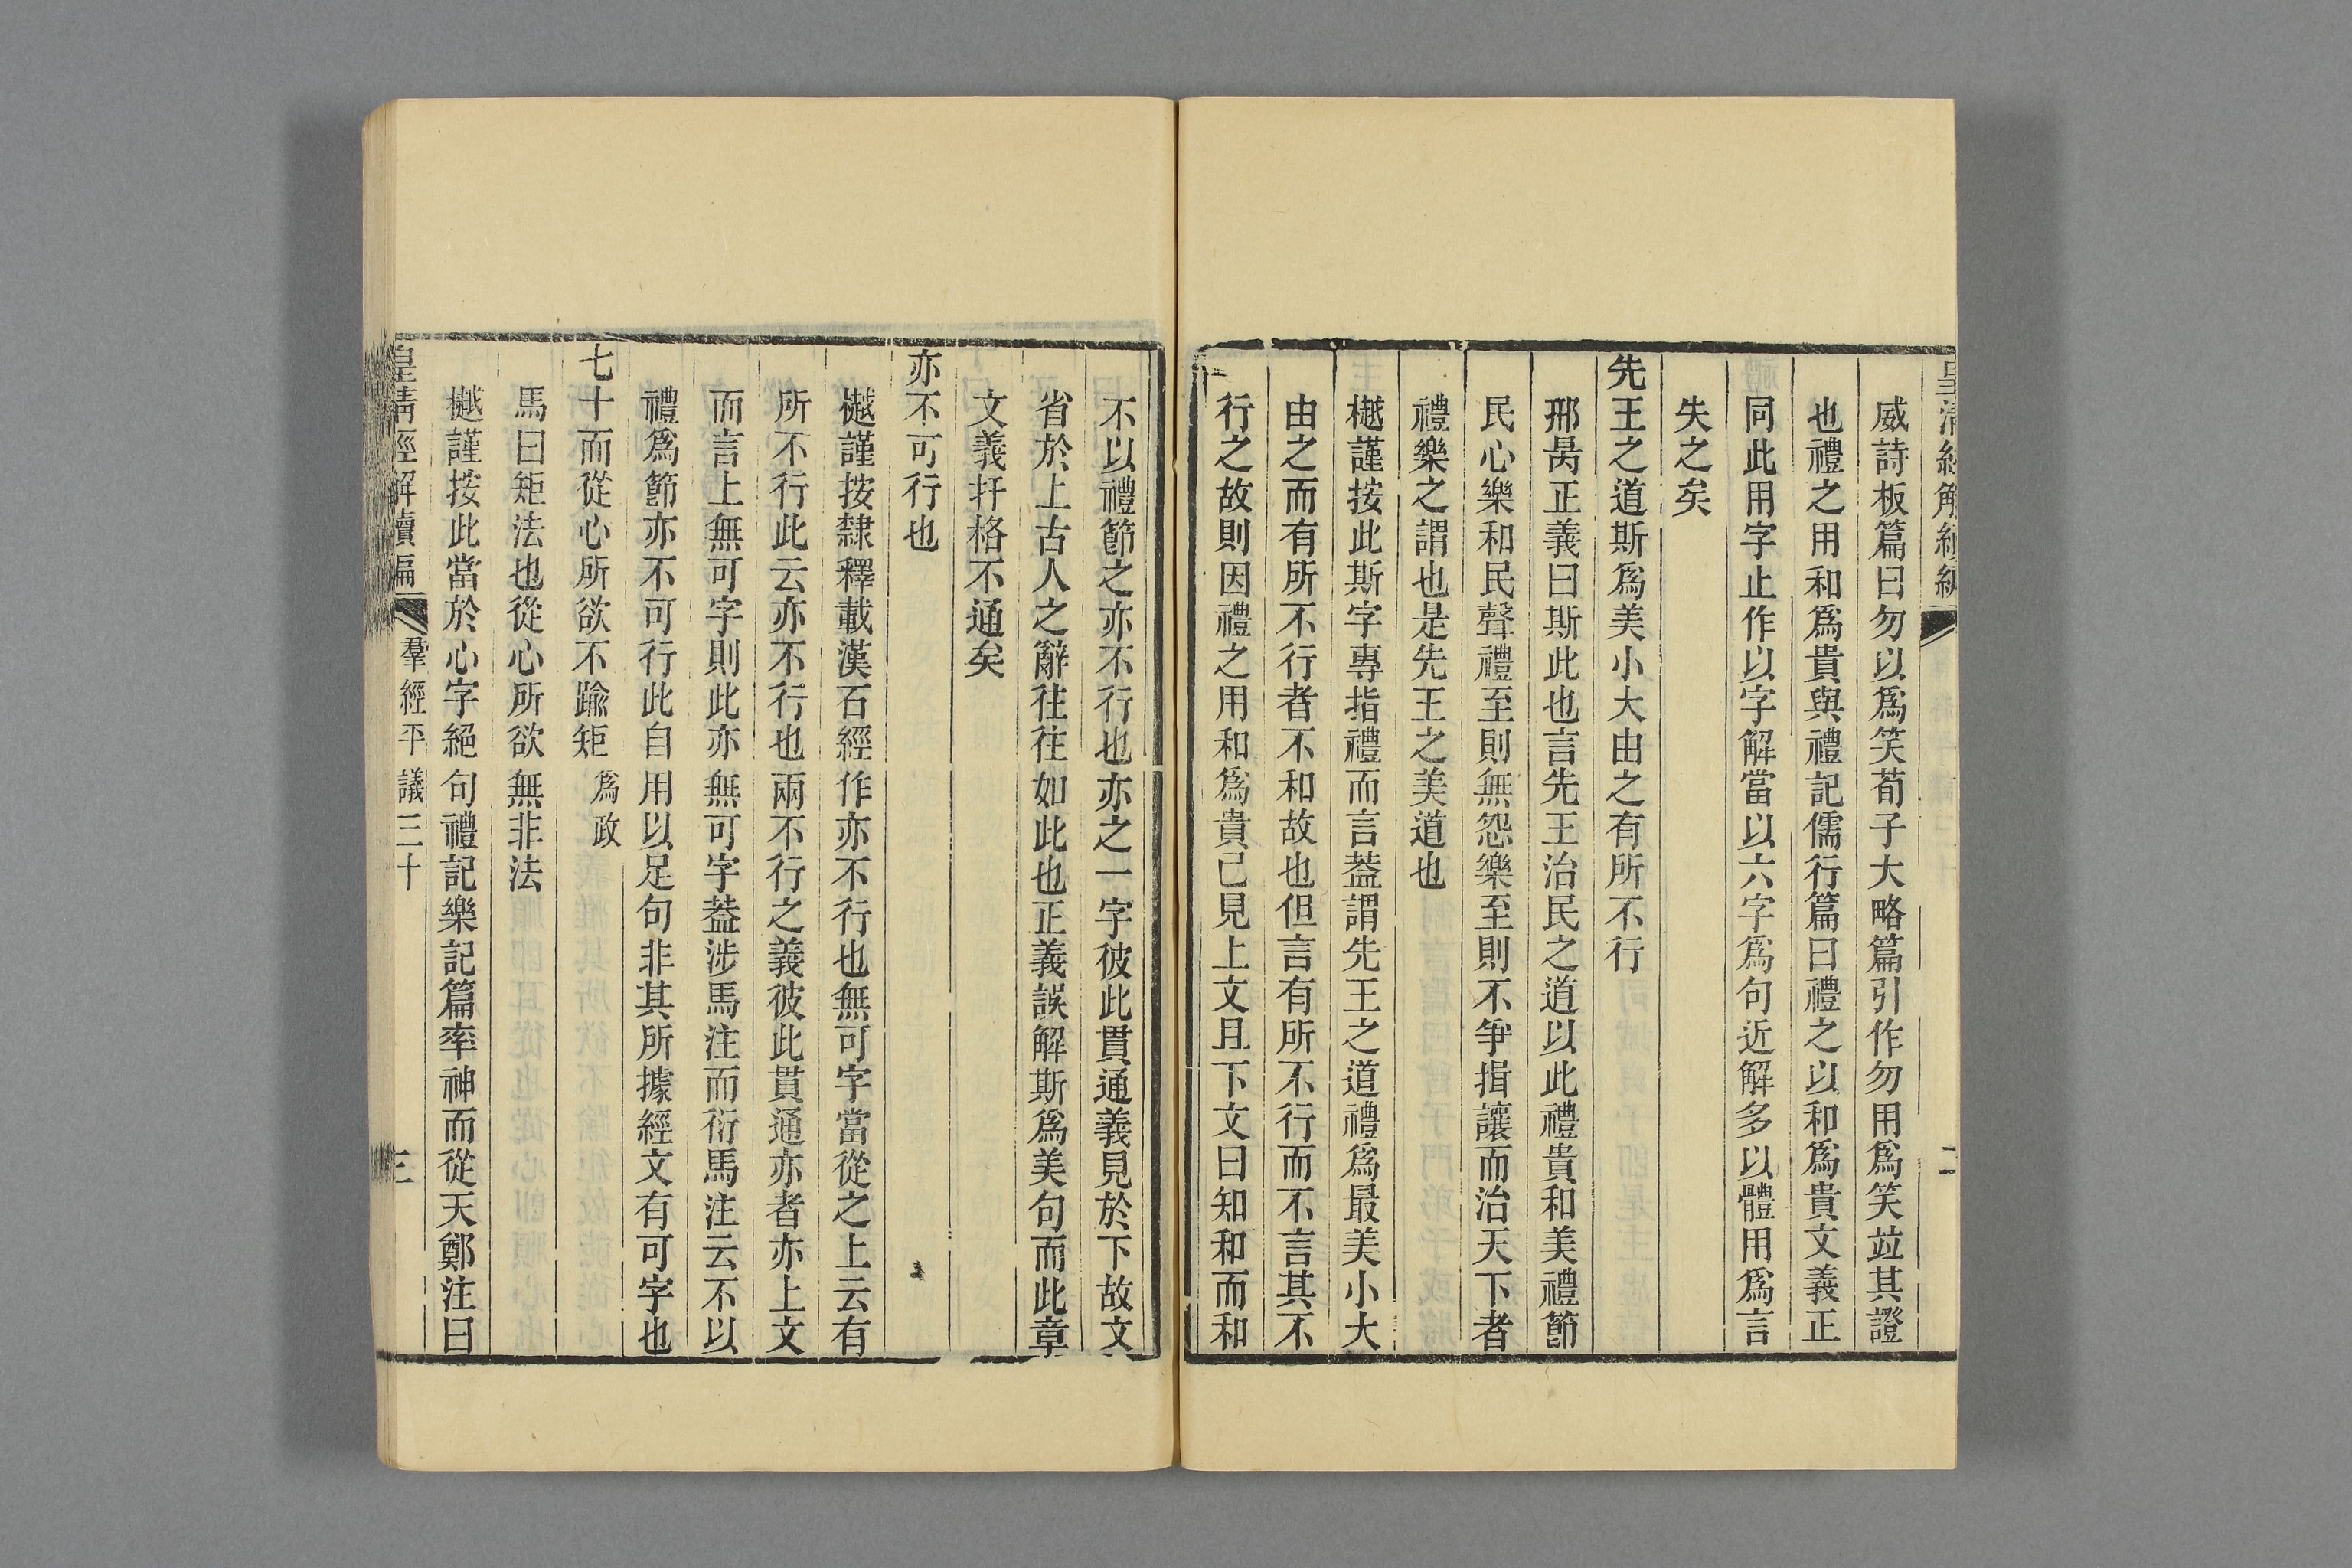 皇清經解續編
二
威詩板篇曰勿以爲笑荀子大略篇引作勿用爲笑竝其證
也禮之用和爲貴與禮記儒行篇曰禮之以和爲貴文義正
同此用字止作以字解當以六字爲句近解多以體用爲言
失之矣
先王之道斯爲美小大由之有所不行
邢昺正義曰斯此也言先王治民之道以此禮貴和美禮節
民心樂和民聲禮至則無怨樂至則不爭揖讓而治天下者
禮樂之謂也是先王之美道也
樾謹按此斯字專指禮而言葢謂先王之道禮爲最美小大
由之而有所不行者不和故也但言有所不行而不言其不
行之故則因禮之用和爲貴已見上文且下文曰知和而和
不以禮節之亦不行也亦之一字彼此貫通義見於下故文
省於上古人之辭往往如此也正義誤解斯爲美句而此章
文義扞格不通矣
亦不可行也
樾謹按隸釋載漢石經作亦不行也無可字當從之上云有
所不行此云亦不行也兩不行之義彼此貫通亦者亦上文
而言上無可字則此亦無可字葢涉馬注而衍馬注云不以
禮爲節亦不可行此自用以足句非其所據經文有可字也
七十而從心所欲不踰矩 爲政
馬曰矩法也從心所欲無非法
樾謹按此當於心字絕句禮記樂記篇率神而從天鄭注曰
皇清經解續編
羣經平議三十
三